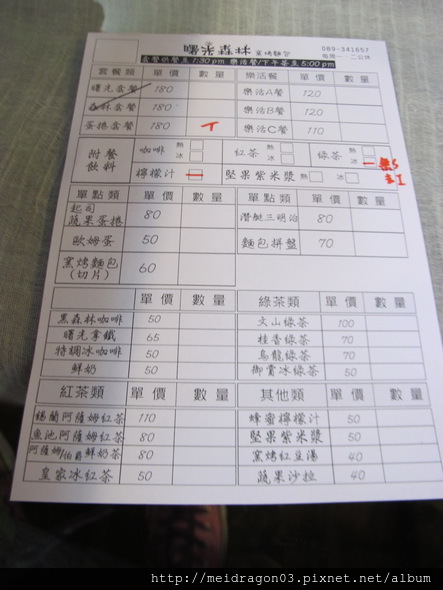 曙光森林 窯烤麵包 089-341657
套餐供餐至1:30pm 樂活餐/下午茶至5:00pm 每周一、二公休
套餐類 單價 數量 樂活餐 單價 數量
曙光套餐 180 樂活A餐 120
森林套餐 180 樂活B餐 120
蛋捲套餐 180 T 樂活C餐 110
附餐飲料 咖啡 熱 冰 紅茶 熱 冰 綠茶 熱 冰
檸檬汁 堅果紫米漿 熱 冰
單點類 單價 數量 單點類 單價 數量
起司蔬果蛋捲 80 潛艇三明治 80
歐姆蛋 50 麵包拼盤 70
窯烤麵包(切片) 60
單價 數量 綠茶類 單價 數量
黑森林咖啡 50 文山綠茶 100
曙光拿鐵 65 桂香綠茶 70
特調冰咖啡 50 烏龍綠茶 70
鮮奶 50 御賞冰綠茶 50
紅茶類 單價 數量 其他類 單價 數量
錫蘭阿薩姆紅茶 110 蜂蜜檸檬汁 50
魚池阿薩姆紅茶 80 堅果紫米漿 50
阿薩姆/伯爵鮮奶茶 80 窯烤紅豆湯 40
皇家冰紅茶 50 蔬果沙拉 40
http://meidragon03.pixnet.net/album